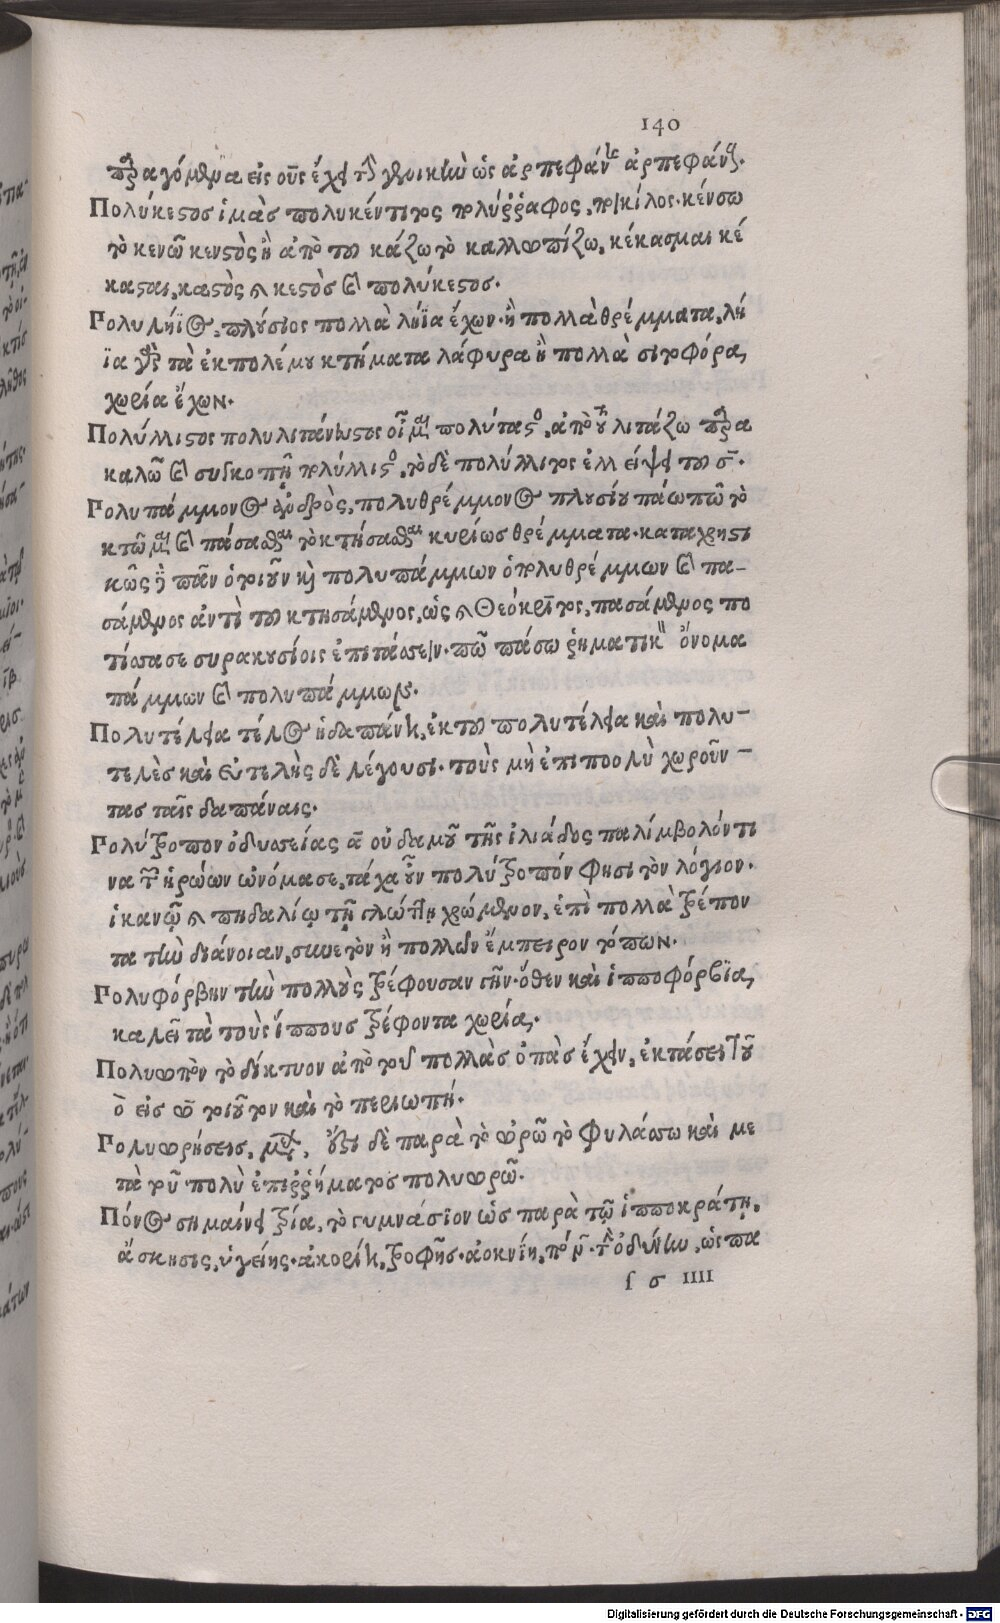 140
παραγόμενα εἰς ους ἔχει τὴν γενικὴν ὡς ἀρπεφάνης ἀρπεφάνους.
Πολύκεστος ἱμὰς πολυκέντητος πολύρραφος, ποικίλος. κένσω
τὸ κενῶ κενστὸς ἢ ἀπὸ τοῦ κάζω τὸ καλλωπίζω, κέκασμαι κέ
κασται, καστὸς καὶ κεστὸς καὶ πολύκεστος.
Πολυλήϊος, πλούσιος πολλὰ λήϊα ἔχων. ἢ πολλὰ θρέμματα, λή
ϊα γὰρ τὰ ἐκ πολέμου κτήματα λάφυρα ἢ πολλὰ σιτοφόρα,
χωρία ἔχων.
Πολύλλιστος πολυλιτάνευστος οἱονεὶ πολύτατος, ἀπὸ τοῦ λιτάζω παρα
καλῶ καὶ συγκοπῇ πολύλλιστος, τὸ δὲ πολύλλιτος ἐλλείψει τοῦ σ.
Πολυπάμμονος ἀνδρὸς, πολυθρέμμονος πλουσίου πάω πῶ τὸ
κτῶμαι καὶ πάσασθαι τὸ κτήσασθαι κυρίως θρέμματα. καταχρηστι
κῶς δὲ πᾶν ὁτιοῦν καὶ πολυπάμμων ὁ πολυθρέμμων καὶ πα-
σάμενος ἀντὶ τοῦ κτησάμενος, ὡς καὶ Θεόκριτος, πασάμενος πο
τίτασσε συρακουσίοις ἐπιτάσσειν. πῶ πάσω ῥηματικὸν ὄνομα
πάμμων καὶ πολυπάμμων.
Πολυτέλεια τέλος ἡ δαπάνη, ἐκ τοῦ πολυτέλεια καὶ πολυ-
τελὲς καὶ εὐτελὴς δὲ λέγουσι. τοὺς μὴ ἐπιποολὺ χωροῦν-
τας ταῖς δαπάναις.
Πολύτροπον ὀδυσσείας α οὐδαμοῦ τῆς ἰλιάδος παλίμβολόν τι
να τῶν ἡρώων ὠνόμασε, τάχα οὖν πολύτροπόν φησι τὸν λόγιον.
ἱκανῷ καὶ πηδαλίῳ τῇ γλώττῃ χρώμενον, ἐπὶ πολλὰ τρέπον
τα τὴν διάνοιαν, συνετὸν ἢ πολλῶν ἔμπειρον τόπων.
Πολυφόρβην τὴν πολλοὺς τρέφουσαν γῆν. ὅθεν καὶ ἱπποφόρβια,
καλεῖ τὰ τοὺς ἵππους τρέφοντα χωρία.
Πολυωπὸν τὸ δίκτυον ἀπὸ τοῦ πολλὰς ὀπὰς ἔχειν, ἐκτάσει τοῦ
ο εἰς ω τοιοῦτον καὶ τὸ περιωπή.
Πολυωρήσεις, μέλλων, ἔστι δὲ παρὰ τὸ ὠρῶ τὸ φυλάσσω καὶ με
τὰ τοῦ πολὺ ἐπιρρήματος πολυωρῶ.
Πόνος σημαίνει τρία, τὸ γυμνάσιον ὡς παρὰ τῷ ἱπποκράτῃ,
ἄσκησις, ὑγείης. ἀκορίη, τροφῆς. ἀοκνίη, πόνων. τὴν ὀδύνην, ὡς πα
ſ σ IIII
Digitalisierung gefördert durch die Deutsche Forschungsgemeinschaft - DFG